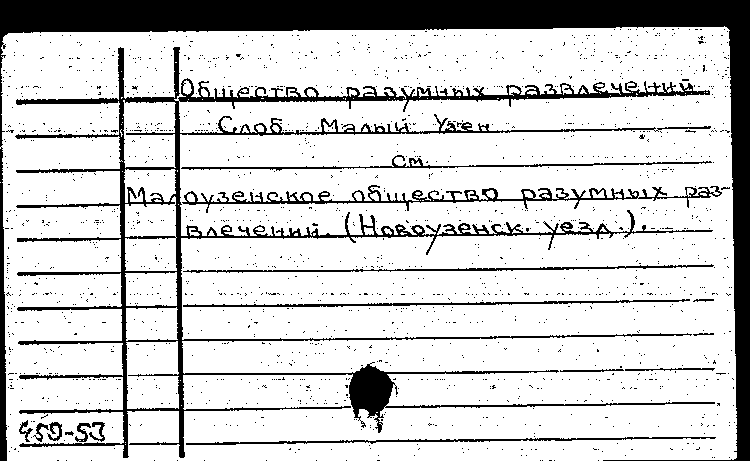 Общество разумных развлечений
Слоб. Малый Узен
см.
Малоузенское общество разумных раз-
влечений. (Новоузенск. уезд.).
450-53